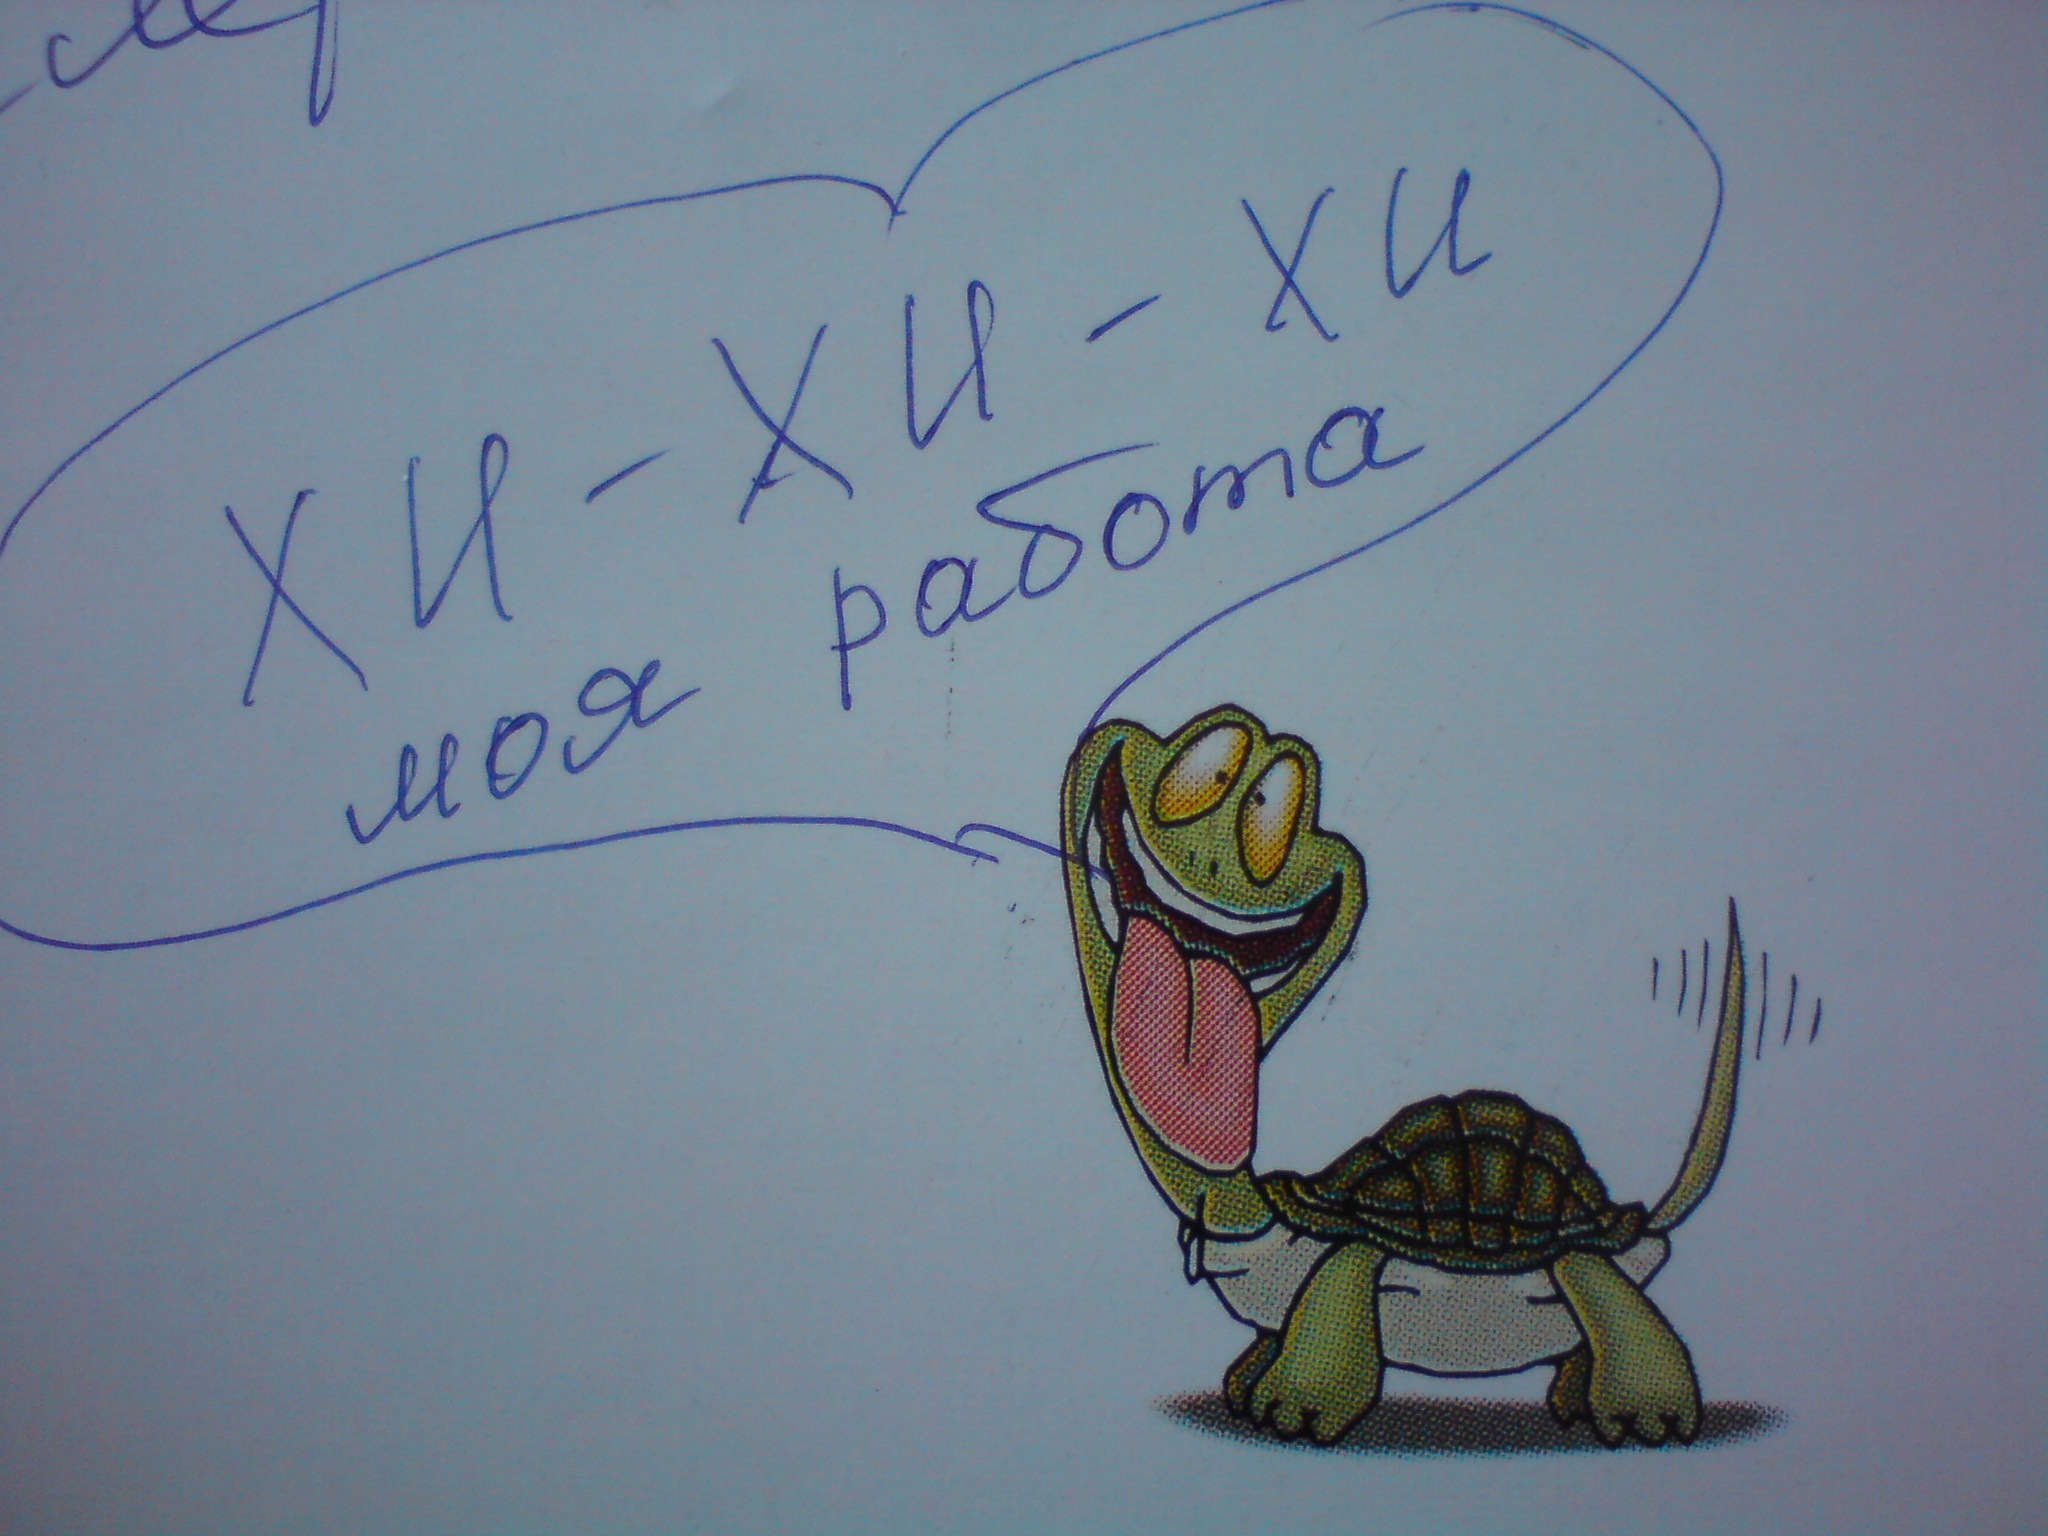 ХИ-ХИ-ХИ
моя работа